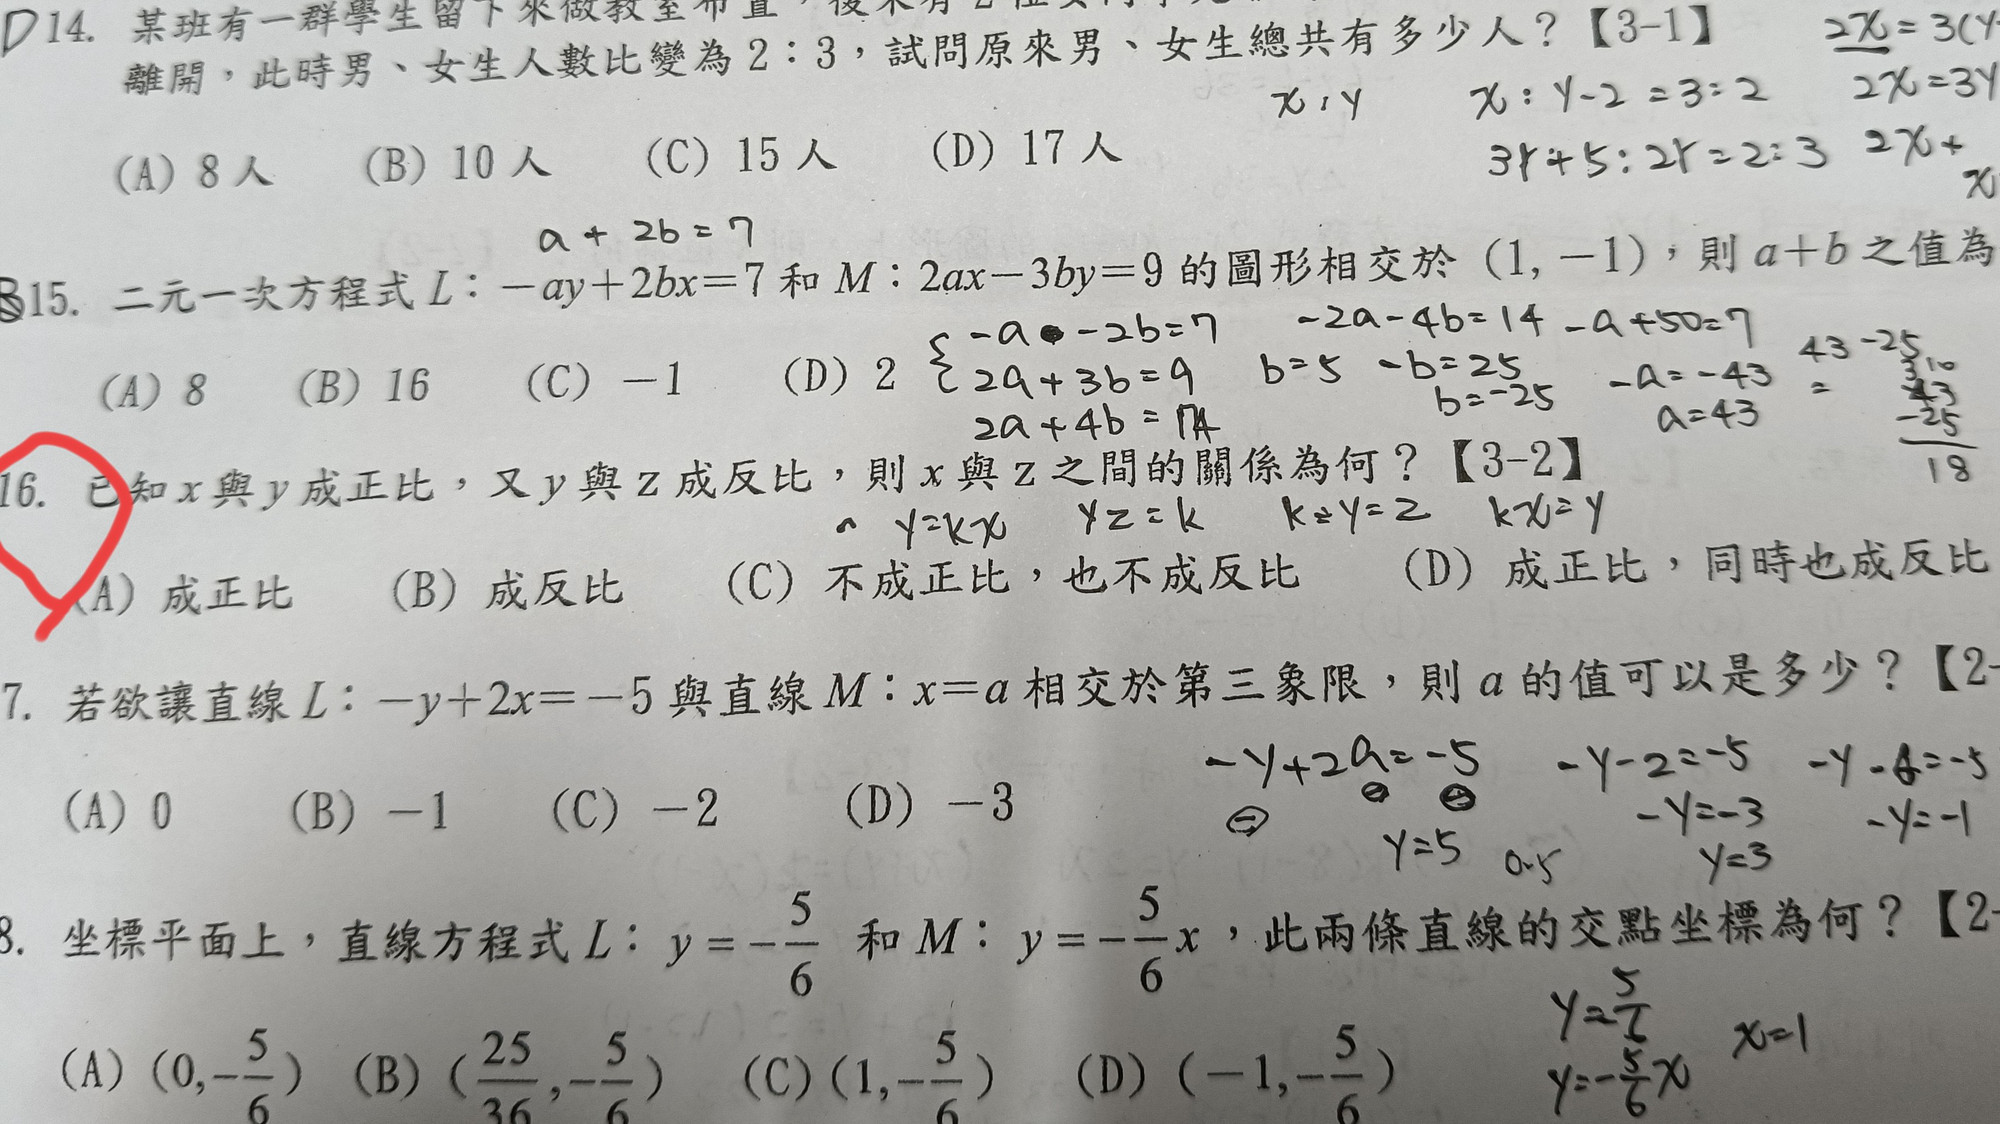 D 14. 某班有一群學生留下來做教室布置，後來有2位女同學先
2x=3(y-
離開，此時男、女生人數比變為2：3，試問原來男、女生總共有多少人？【3-1】
x:y x:y-2=3:2 2x=3y
(A) 8人 (B) 10人 (C) 15人 (D) 17人
3r+5:2r=2:3 2x+
x
a+2b=7
B 15. 二元一次方程式L：-ay+2bx=7和M：2ax-3by=9的圖形相交於(1,-1)，則a+b之值為
-a-2b=7 -2a-4b=14 -a+50=7
(A) 8 (B) 16 (C) -1 (D) 2
2a+3b=9 b=5 -b=25 -a=-43 43-25
2a+4b=14 b=-25 a=43 =
43
-25
18
16. 已知x與y成正比，又y與z成反比，則x與z之間的關係為何？【3-2】
y=kx yz=k k÷y=z kx=y
(A) 成正比 (B) 成反比 (C) 不成正比，也不成反比 (D) 成正比，同時也成反比
7. 若欲讓直線L：-y+2x=-5與直線M：x=a相交於第三象限，則a的值可以是多少？【2-
-y+2a=-5 -y-2=-5 -y-6=-5
(A) 0 (B) -1 (C) -2 (D) -3
-y=-3 -y=-1
y=5 0.5 y=3
8. 坐標平面上，直線方程式L：y=-5/6 和M：y=-5/6x，此兩條直線的交點坐標為何？【2-
y=5/6 x=1
y=-5/6x
(A) (0,-5/6) (B) (25/36,-5/6) (C) (1,-5/6) (D) (-1,-5/6)